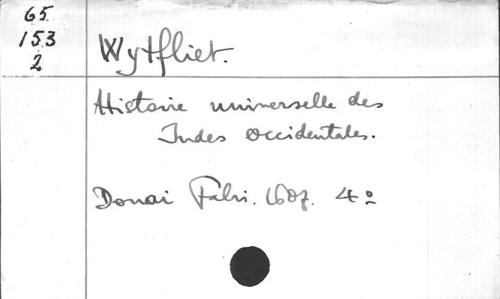 65
153
2
Wytfliet.
Histoire universelle des
Indes Occidentales.
Douai Fabri. 1607. 4º